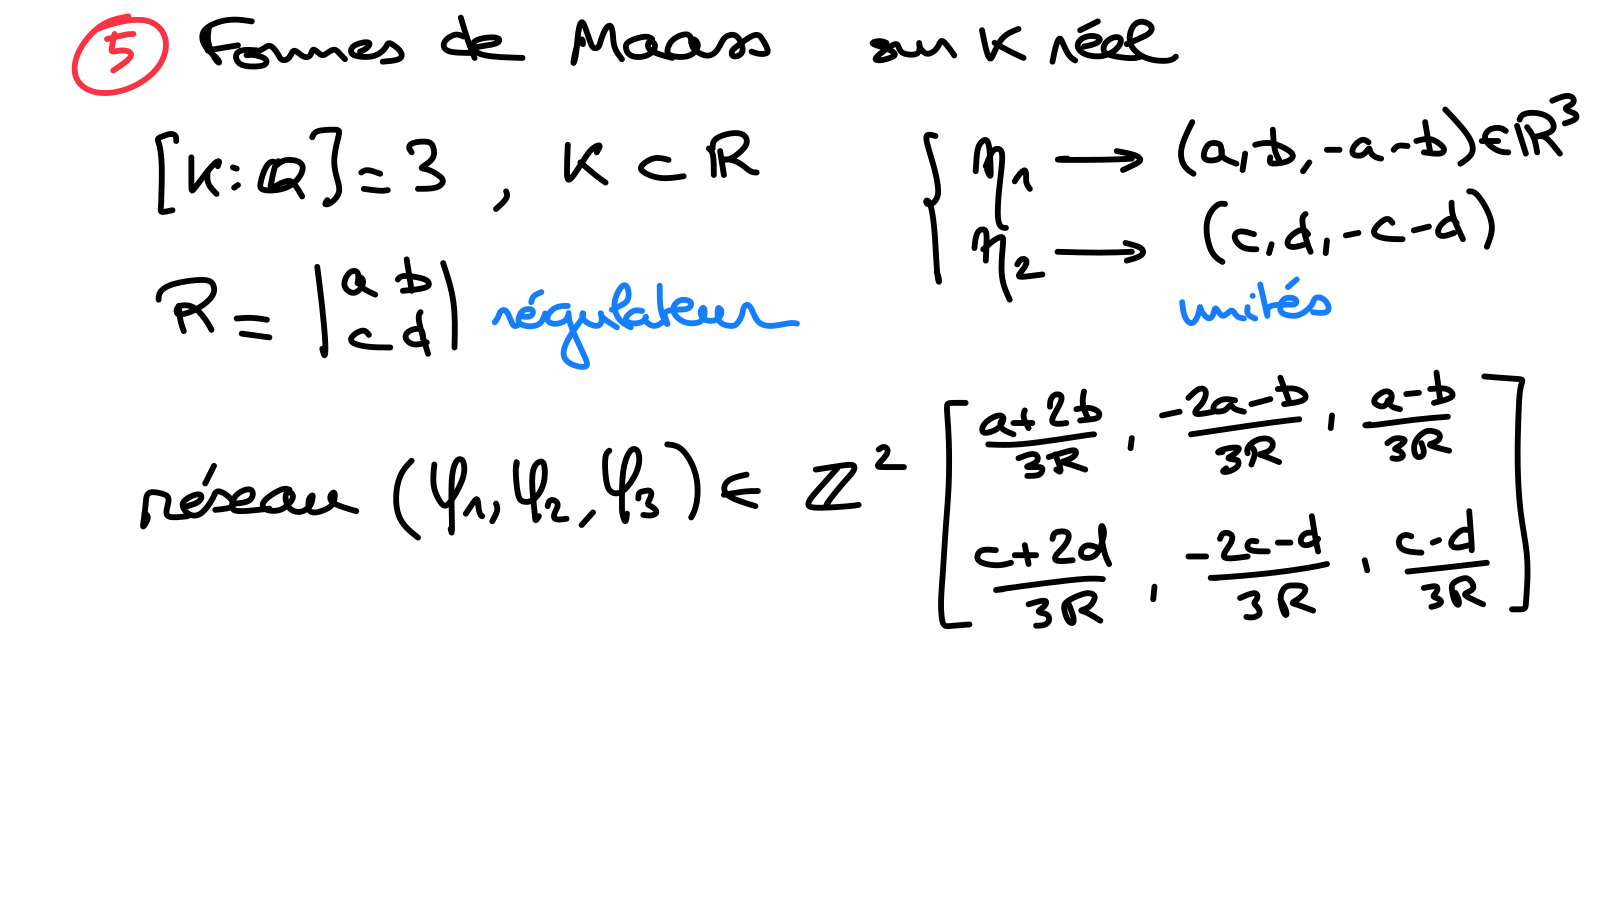 ⑤ Formes de Maass sur K réel
[K:Q]=3, K ⊂ ℝ
{ η₁ → (a, b, -a-b) ∈ ℝ³
η₂ → (c, d, -c-d)
unités
R = |a b; c d| régulateur
réseau (φ₁, φ₂, φ₃) ∈ ℤ² [ (a+2b)/3R, (-2a-b)/3R, (a-b)/3R
(c+2d)/3R, (-2c-d)/3R, (c-d)/3R ]